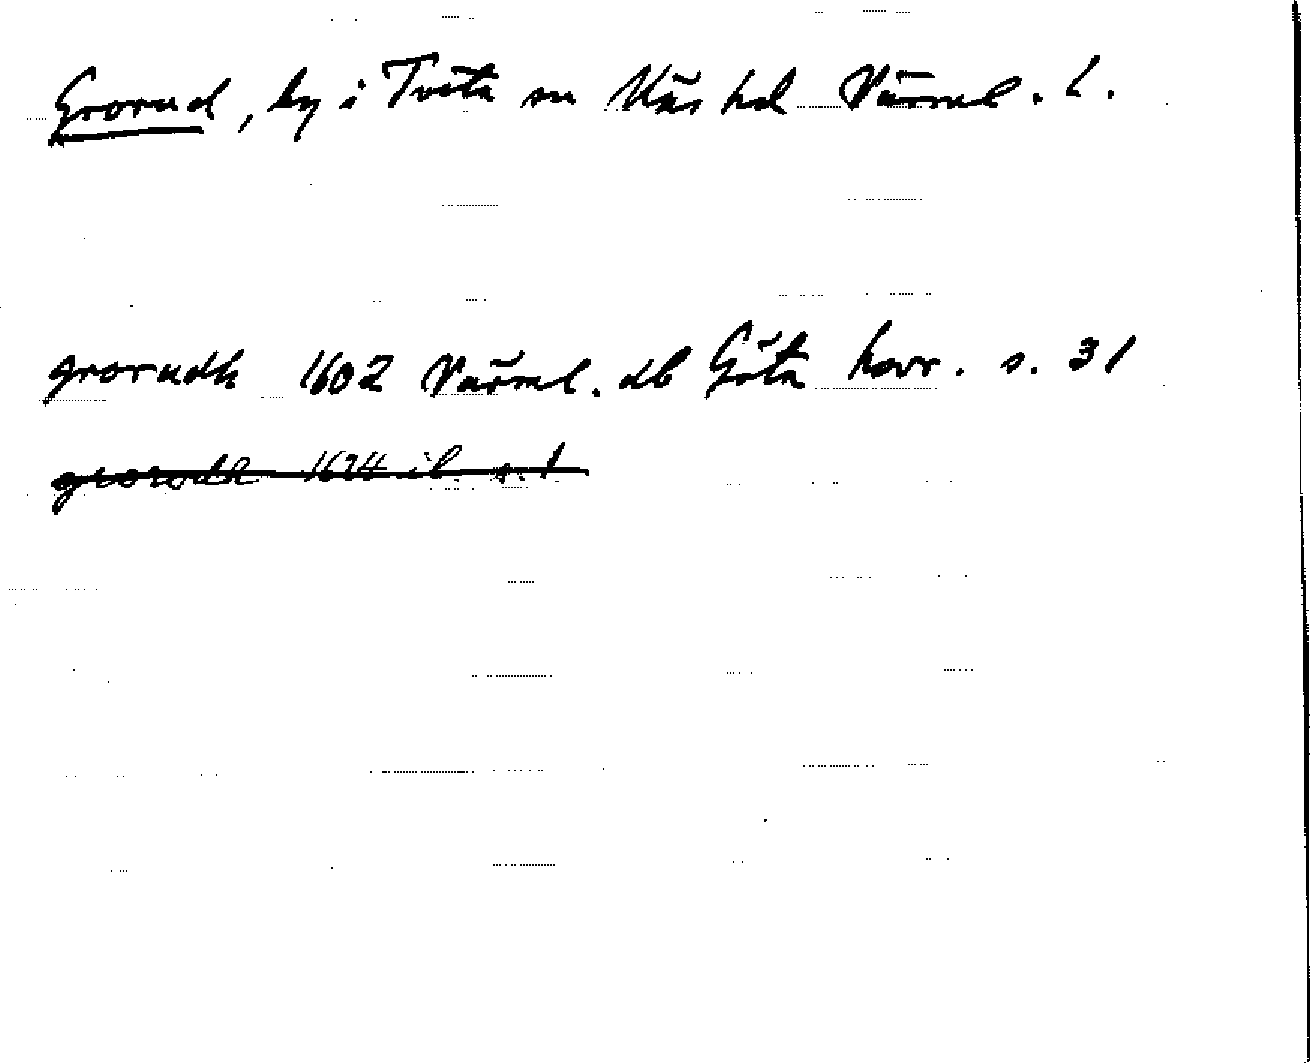 Grorud, by i Tveta sn Näs hd Värml. l.
grorudh 1602 Värml. db Göta hovr. s. 31
grorudh 1624 ib. s. 1